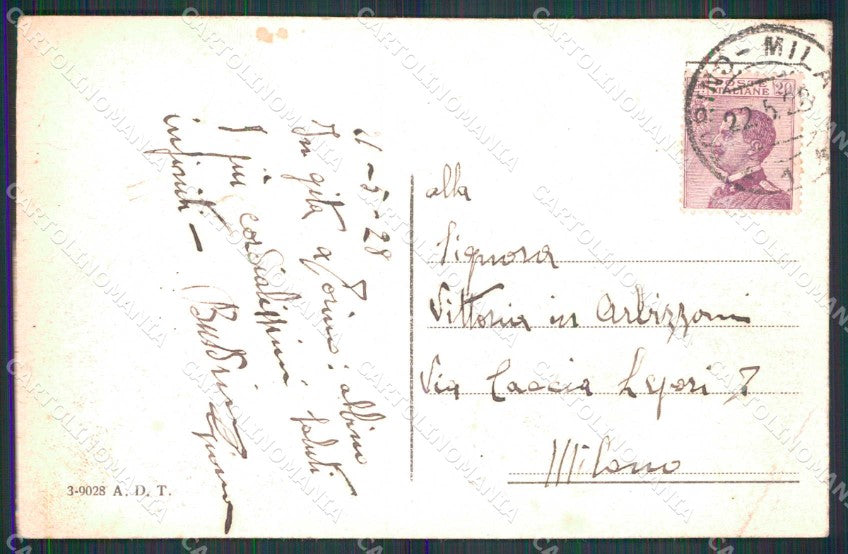 21-5-28
In gita a Torino, abbia
I più cordialissimi saluti
infiniti -
alla
Signora
Vittoria in Arbizzoni
Via Caccia Lepori 7
Milano
POSTE ITALIANE
20
TORINO - MILA
22.5.28
3-9028 A. D. T.
CARTOLINOMANIA